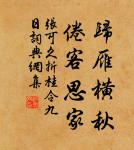 歸雁橫秋
倦客思家
張可久折桂令九
日詞典網集